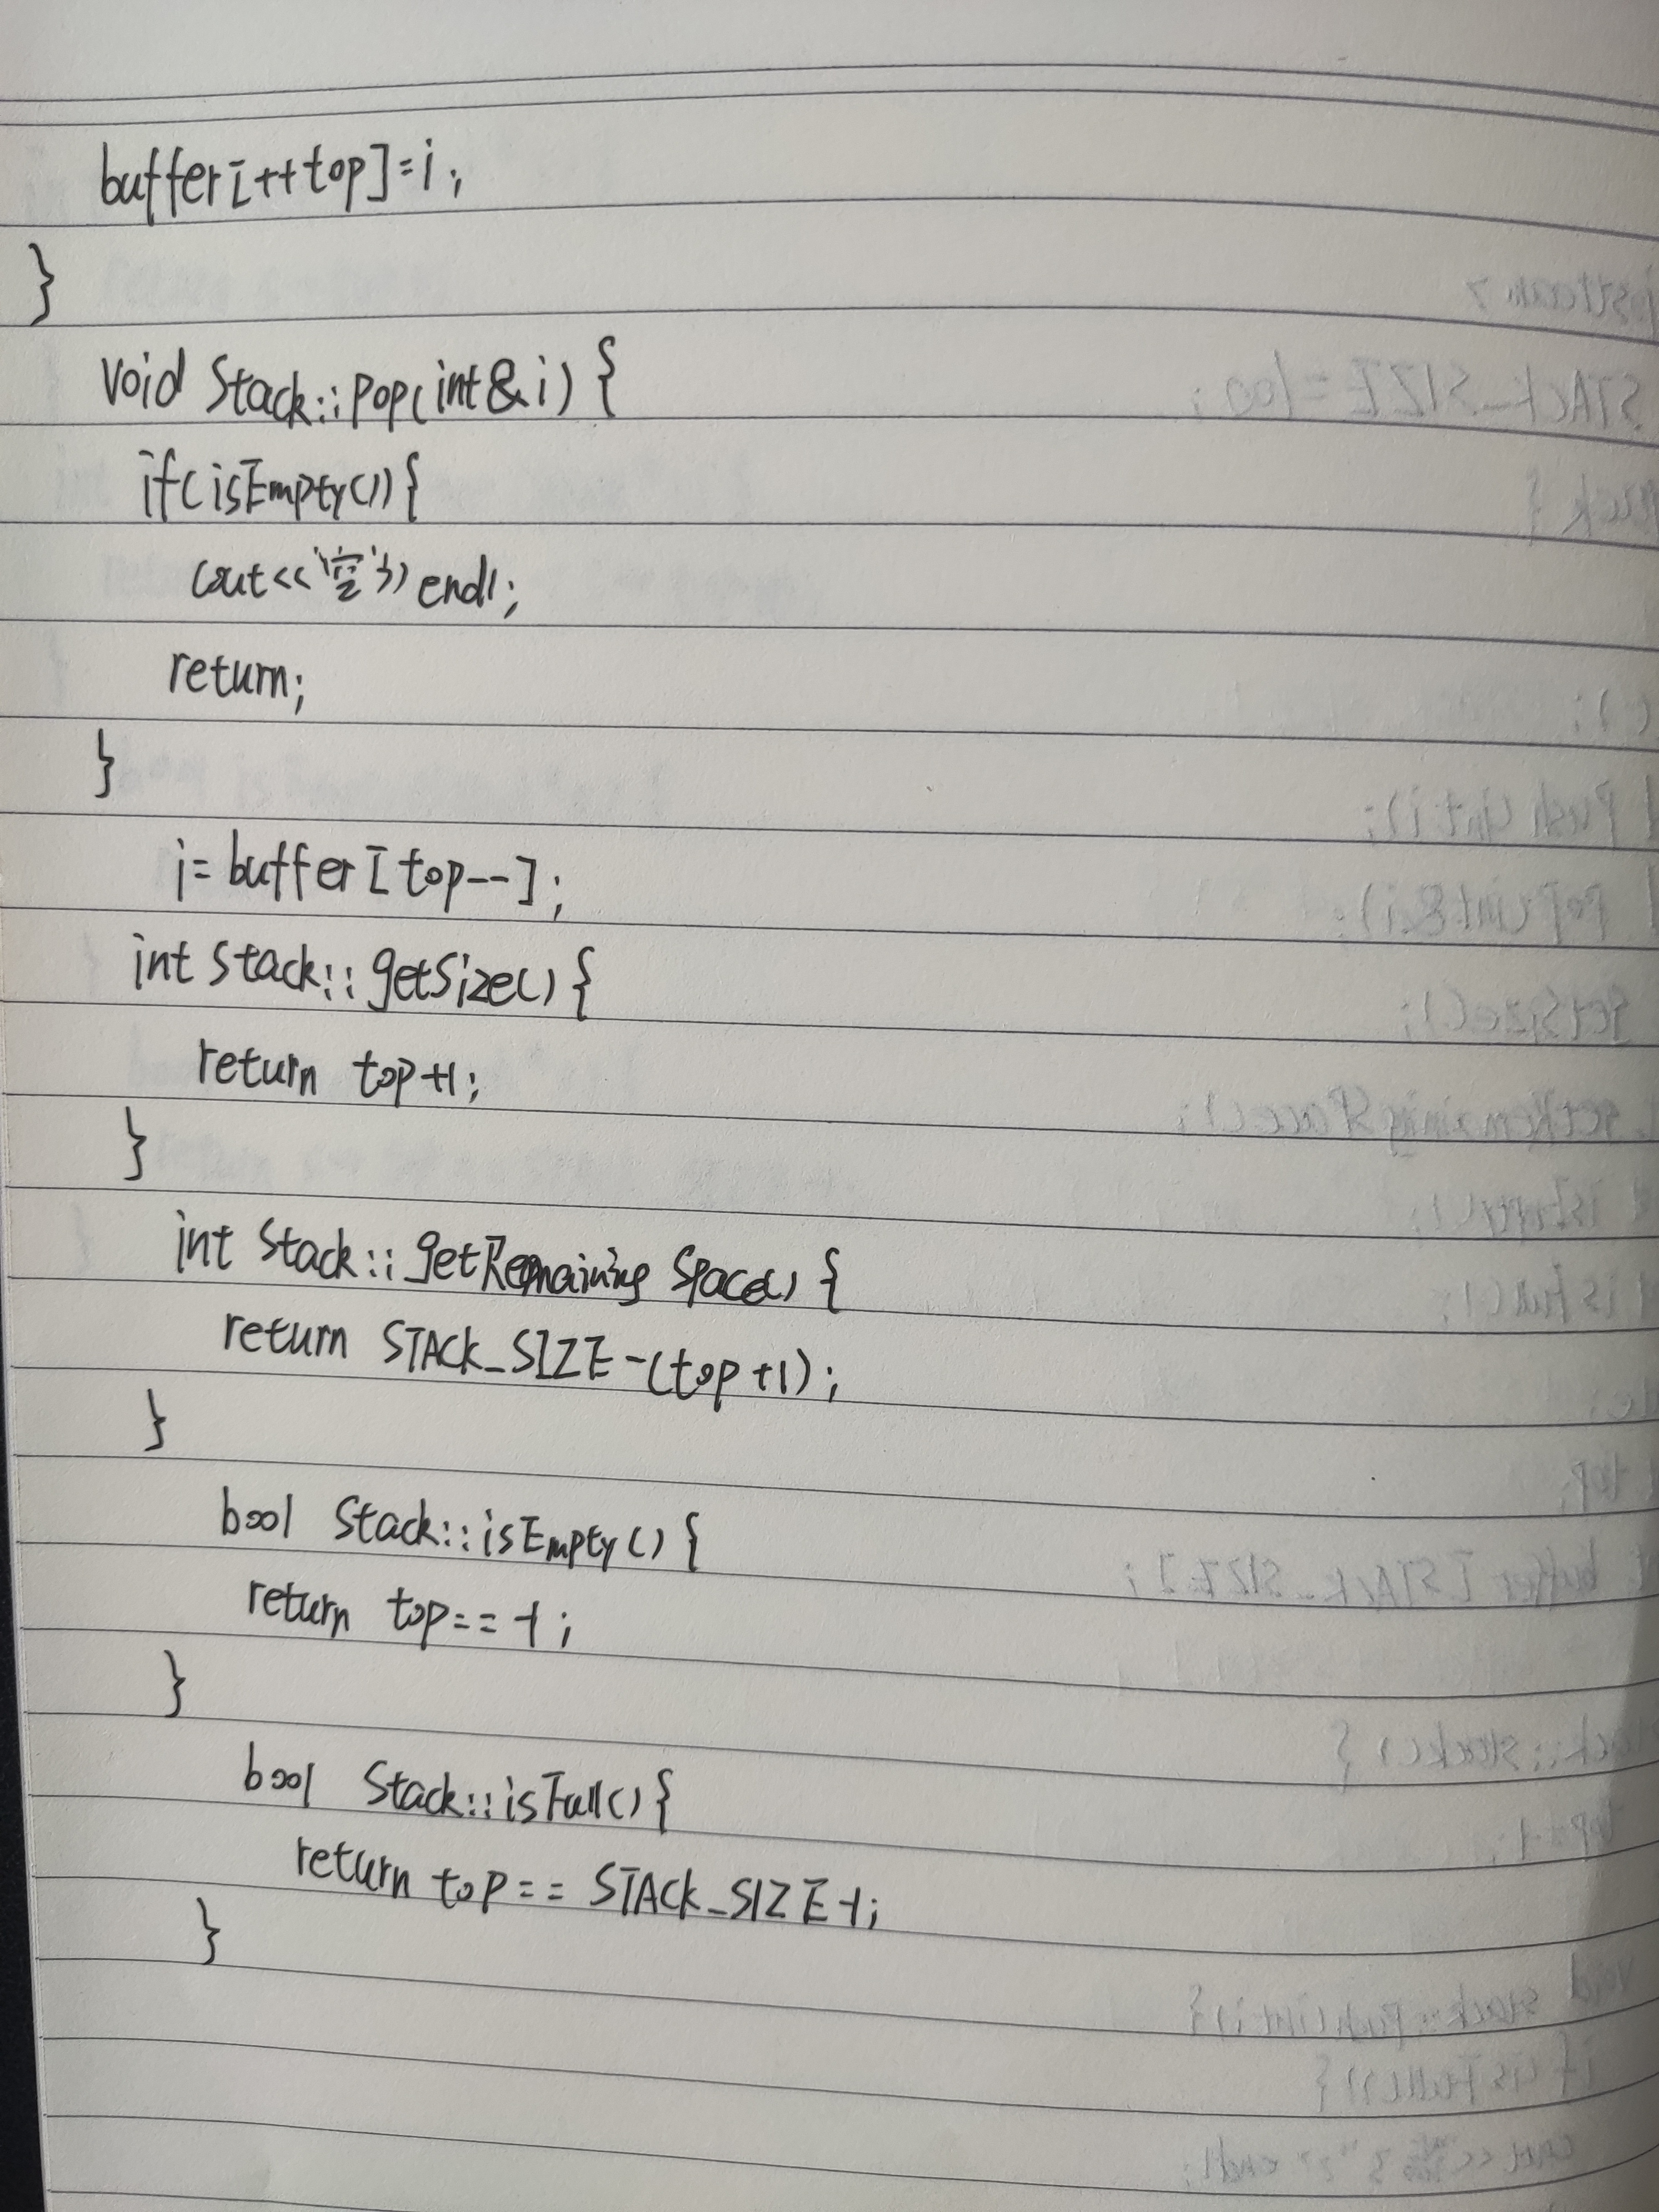 buffer[++top]=i;
}
void Stack::pop(int&i){
if(isEmpty()){
cout<<"空">> endl;
return;
}
i=buffer[top--];
int Stack::getSize(){
return top+1;
}
int Stack::getRemaining Space(){
return STACK_SIZE-(top+1);
}
bool Stack::isEmpty(){
return top==-1;
}
bool Stack::isFull(){
return top==STACK_SIZE-1;
}